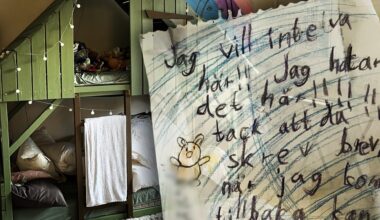 Jag vill inte va
här!! Jag hatar
det här!!!!
tack att du
skrev brev
när jag kom
tillbaka